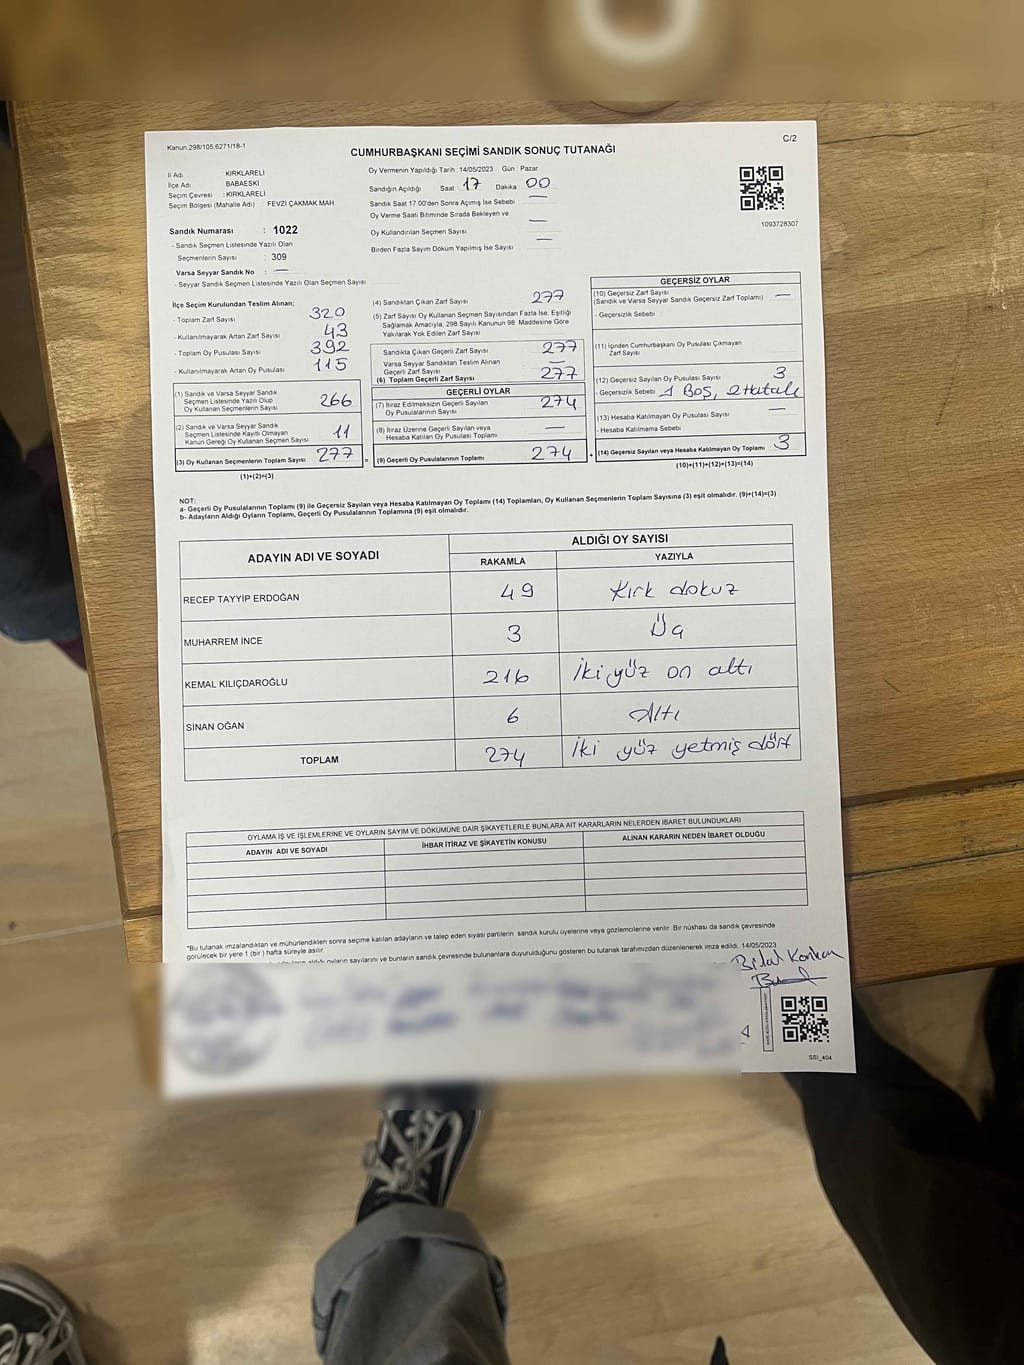 Kanun:298/105,6271/18-1
C/2
CUMHURBAŞKANI SEÇİMİ SANDIK SONUÇ TUTANAĞI
İl Adı KIRKLARELİ
İlçe Adı BABAESKİ
Seçim Çevresi : KIRKLARELİ
Seçim Bölgesi (Mahalle Adı) FEVZİ ÇAKMAK MAH
Sandık Numarası : 1022
- Sandık Seçmen Listesinde Yazılı Olan
Seçmenlerin Sayısı : 309
Varsa Seyyar Sandık No : —
- Seyyar Sandık Seçmen Listesinde Yazılı Olan Seçmen Sayısı
Oy Vermenin Yapıldığı Tarih : 14/05/2023 Gün : Pazar
Sandığın Açıldığı Saat 17 Dakika 00
Sandık Saat 17:00'den Sonra Açımış İse Sebebi —
Oy Verme Saati Bitiminde Sırada Bekleyen ve
Oy Kullandırılan Seçmen Sayısı —
Birden Fazla Sayım Döküm Yapılmış İse Sayısı —
1093728307
İlçe Seçim Kurulundan Teslim Alınan;
- Toplam Zarf Sayısı 320
- Kullanılmayarak Artan Zarf Sayısı 43
- Toplam Oy Pusulası Sayısı 392
- Kullanılmayarak Artan Oy Pusulası 115
(1) Sandık ve Varsa Seyyar Sandık
Seçmen Listesinde Yazılı Olup
Oy Kullanan Seçmenlerin Sayısı 266
(2) Sandık ve Varsa Seyyar Sandık
Seçmen Listesinde Kayıtlı Olmayan
Kanun Gereği Oy Kullanan Seçmen Sayısı 11
(3) Oy Kullanan Seçmenlerin Toplam Sayısı 277
(1)+(2)=(3)
(4) Sandıktan Çıkan Zarf Sayısı 277
(5) Zarf Sayısı Oy Kullanan Seçmen Sayısından Fazla İse, Eşitliği
Sağlamak Amacıyla, 298 Sayılı Kanunun 98. Maddesine Göre
Yakılarak Yok Edilen Zarf Sayısı
Sandıkta Çıkan Geçerli Zarf Sayısı 277
Varsa Seyyar Sandıktan Teslim Alınan
Geçerli Zarf Sayısı —
(6) Toplam Geçerli Zarf Sayısı 277
GEÇERLİ OYLAR
(7) İtiraz Edilmeksizin Geçerli Sayılan
Oy Pusulalarının Sayısı 274
(8) İtiraz Üzerine Geçerli Sayılan veya
Hesaba Katılan Oy Pusulası Toplamı —
= (9) Geçerli Oy Pusulalarının Toplamı 274
GEÇERSİZ OYLAR
(10) Geçersiz Zarf Sayısı
(Sandık ve Varsa Seyyar Sandık Geçersiz Zarf Toplamı) —
- Geçersizlik Sebebi
(11) İçinden Cumhurbaşkanı Oy Pusulası Çıkmayan
Zarf Sayısı
(12) Geçersiz Sayılan Oy Pusulası Sayısı 3
- Geçersizlik Sebebi 1 Boş, 2 Hatalı
(13) Hesaba Katılmayan Oy Pusulası Sayısı —
- Hesaba Katılmama Sebebi
+ (14) Geçersiz Sayılan veya Hesaba Katılmayan Oy Toplamı 3
(10)+(11)+(12)+(13)=(14)
NOT:
a- Geçerli Oy Pusulalarının Toplamı (9) ile Geçersiz Sayılan veya Hesaba Katılmayan Oy Toplamı (14) Toplamları, Oy Kullanan Seçmenlerin Toplam Sayısına (3) eşit olmalıdır. (9)+(14)=(3)
b- Adayların Aldığı Oyların Toplamı, Geçerli Oy Pusulalarının Toplamına (9) eşit olmalıdır.
ADAYIN ADI VE SOYADI
ALDIĞI OY SAYISI
RAKAMLA YAZIYLA
RECEP TAYYİP ERDOĞAN 49 Kırk dokuz
MUHARREM İNCE 3 Üç
KEMAL KILIÇDAROĞLU 216 İki yüz on altı
SİNAN OĞAN 6 Altı
TOPLAM 274 İki yüz yetmiş dört
OYLAMA İŞ VE İŞLEMLERİNE VE OYLARIN SAYIM VE DÖKÜMÜNE DAİR ŞİKAYETLERLE BUNLARA AİT KARARLARIN NELERDEN İBARET BULUNDUKLARI
ADAYIN ADI VE SOYADI İHBAR İTİRAZ VE ŞİKAYETİN KONUSU ALINAN KARARIN NEDEN İBARET OLDUĞU
*Bu tutanak imzalandıktan ve mühürlendikten sonra seçime katılan adayların ve talep eden siyasi partilerin sandık kurulu üyelerine veya gözlemcilerine verilir. Bir nüshası da sandık çevresinde
görülecek bir yere 1 (bir) hafta süreyle asılır.
aldığı oyların sayılarını ve bunların sandık çevresinde bulunanlara duyurulduğunu gösteren bu tutanak tarafımızdan düzenlenerek imza edildi. 14/05/2023
SSI_404